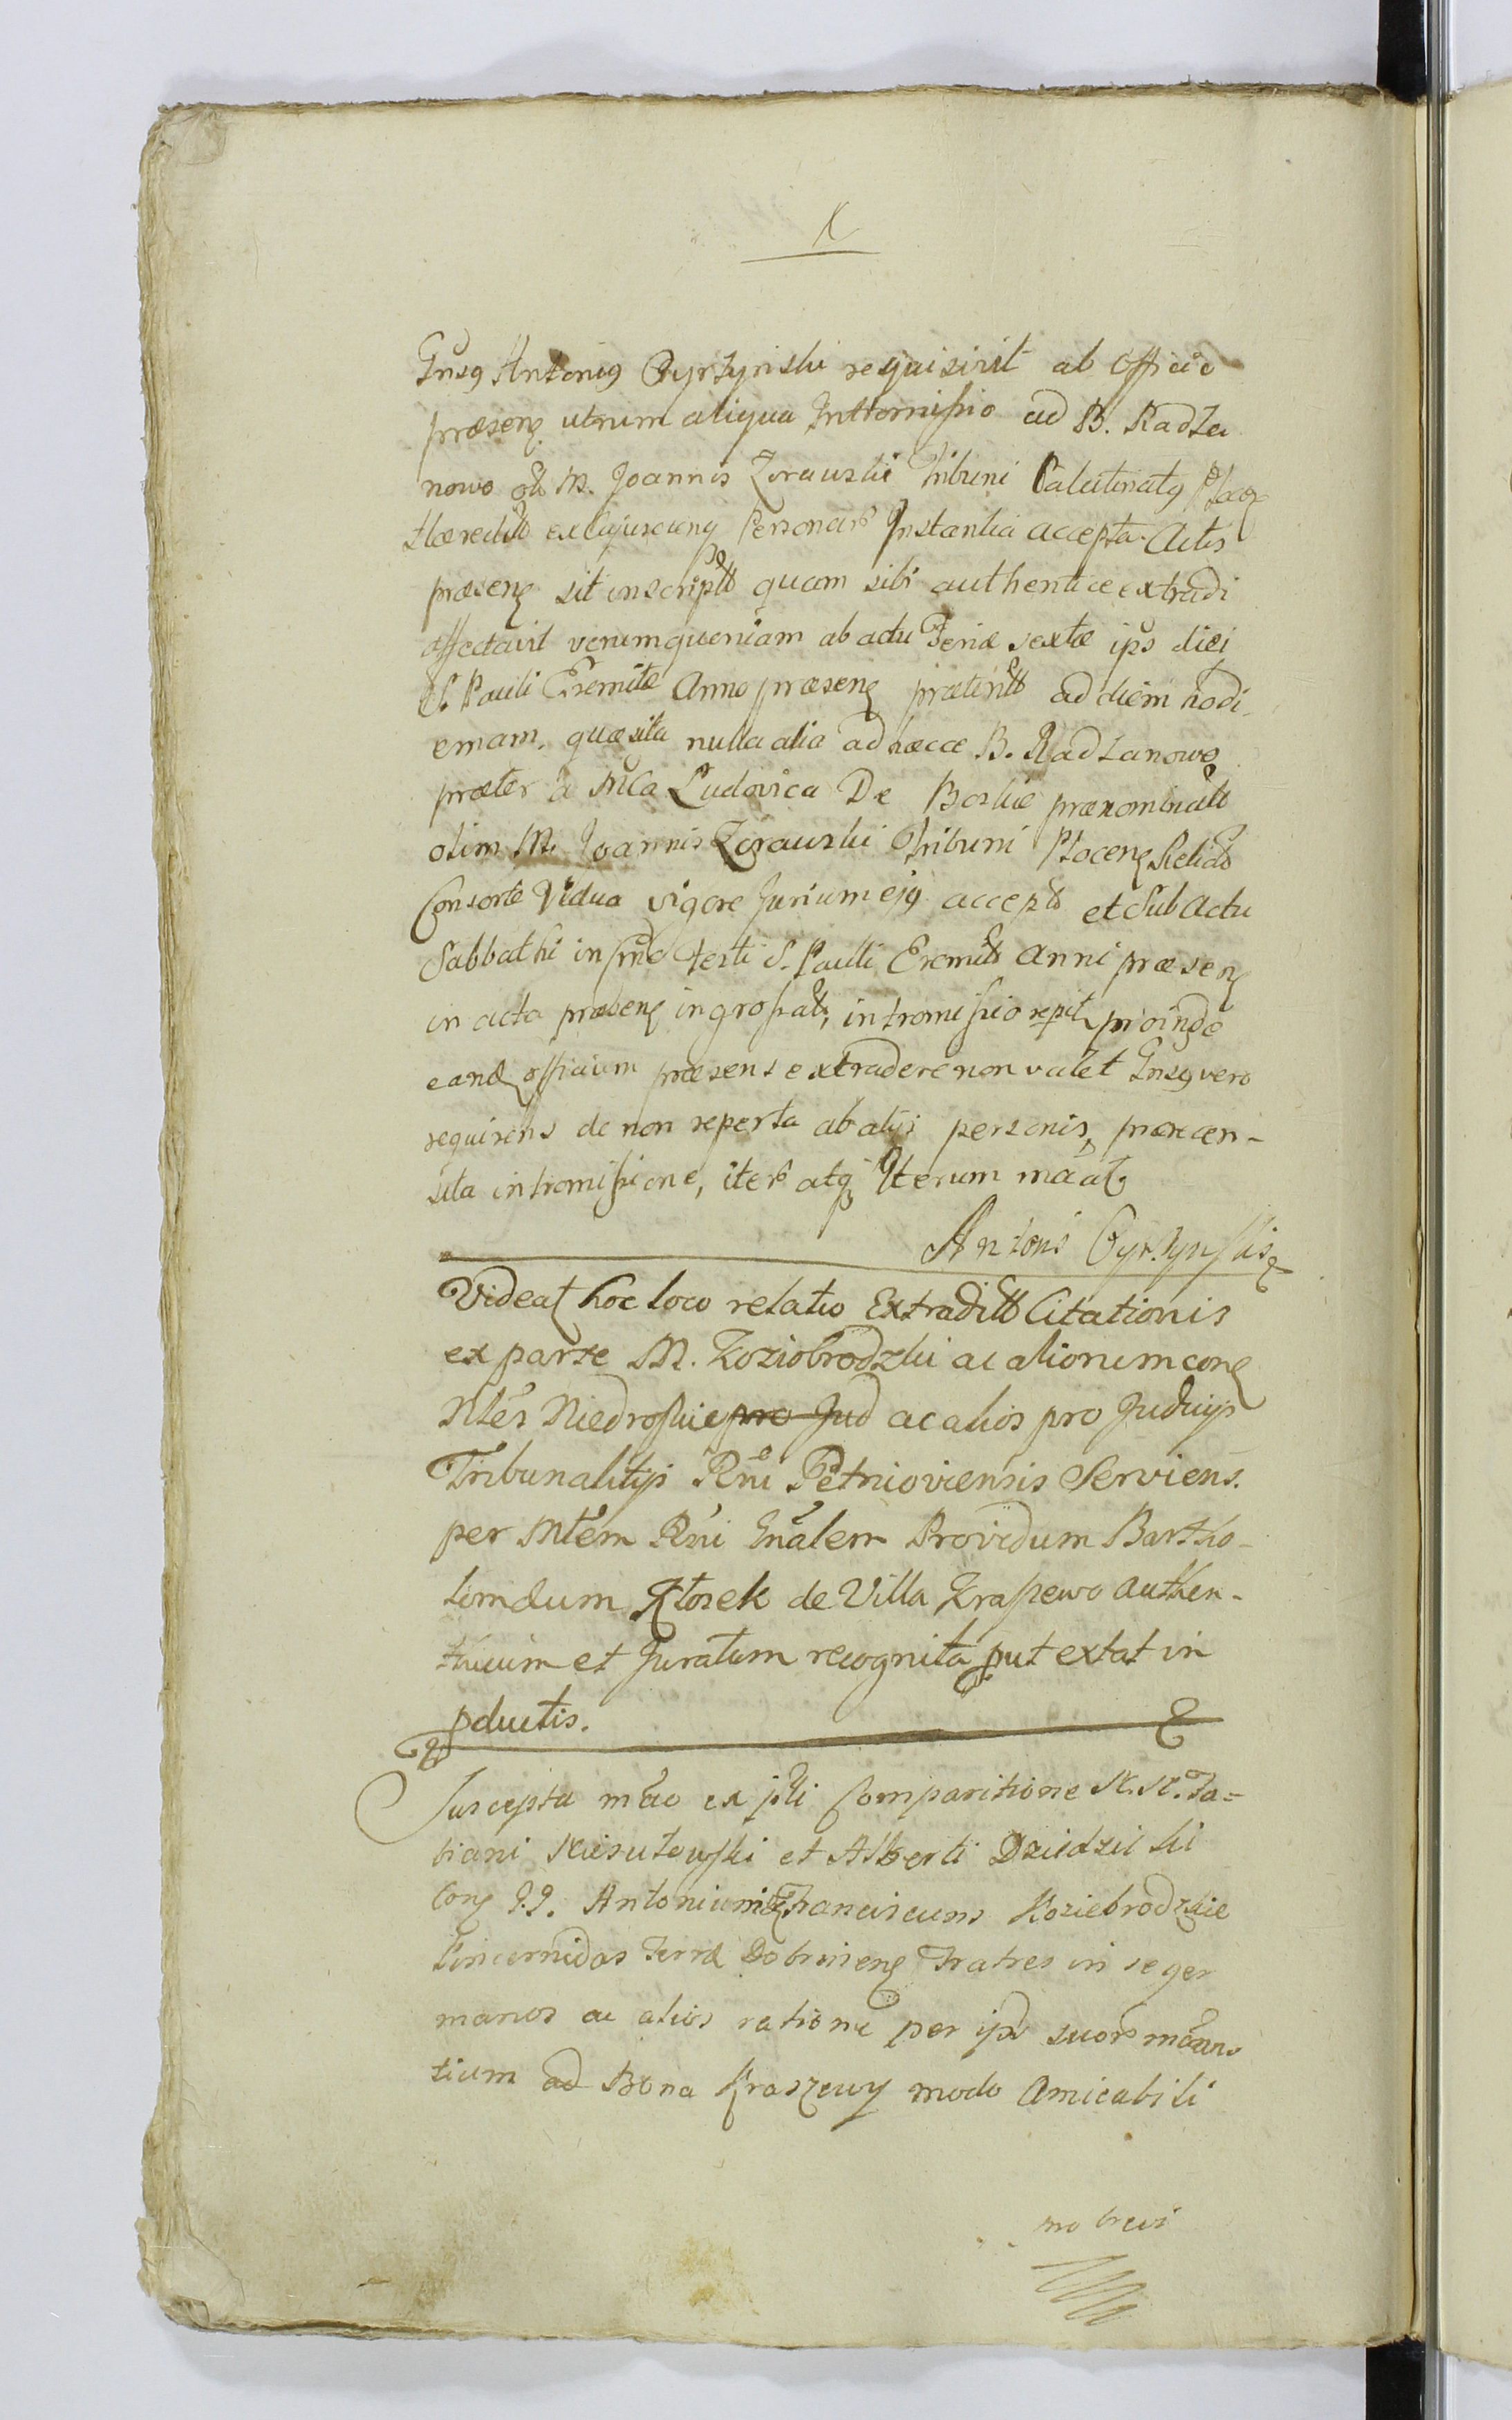 X
Gnsq Antoniq Cyrzynski requisivit ab Officio
præsenç utrum aliqua Inttomissio ad B. Radza
nowo M. Joannis Zorawski Tribuni Palatinatq Płocç
Hæredit ex cujuscunq Personar Instantia accepta Actis
præsenç sit inscript quam sibi authentice extradi
affectavit verumqueniam ab actu Feriæ sextæ ips diei
S. Pauli Eremitæ Anno præsenç præterit ad diem hodi-
ernam, quæsita nulla alia ad hæcce B. Radzanowo
præter a Mca Ludovica De Boskie prænominati
olim M. Joannis Zorawski Tribuni Płocenç Relict
Consorte Vidua vigore Jurium ejq accept et Sub Actu
Sabbathi in fmo festi S. Pauli Eremit Anni præsenç
in acta præsenç ingrossat, intromissio reperit proinde
eandç officium præsens extradere non valet Gnsq vero
requirens de non reperta ab alijs personis, præcen-
sita intromissione, iter atq Iterum maat
Antoni Cyrzynskiç
Videat hoc loco relatio Extradit Citationis
ex parte M. Koziobrodzki ac aliorum conç
Mles Niedroskie pro Jud ac alios pro Judicijs
Tribunalitijs Rni Petricoviensis Serviens.
per Mtem Rni Gnalem Providum Bartho-
lomeum Kłosek de Villa Krasewo Authen-
ticum et Juratum recognita put extat in
pductis.
Suscepta mao ex pti Comparitione M. M. Fa=
biani Kiesutowski et Alberti Dziedzicki
Conç G.G. Antonium & Franciscum Koziebrodzkie
Pincernidas Terræ Dobrinenç Fratres in se ger
manos ac alios ratione per ips suor maan
tium ad Bona Kraszewy modo Amicabili
mo brevi